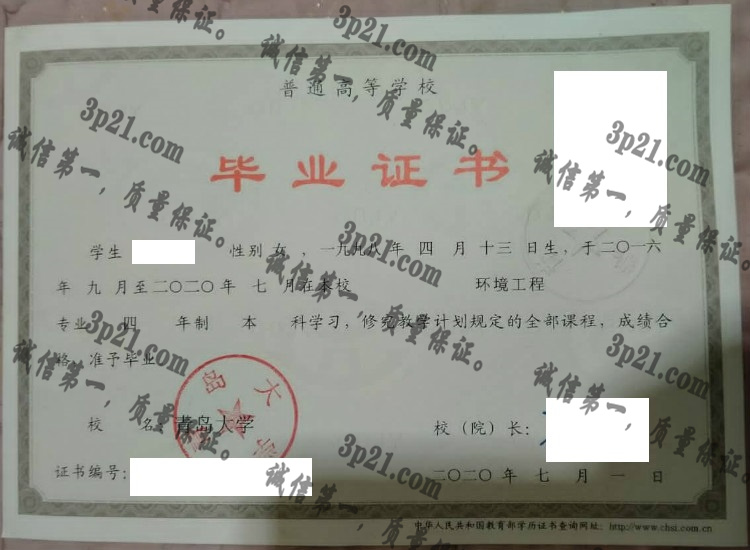 普通高等学校
毕业证书
学生 性别 女 ，一九九八 年 四 月 十三 日生，于二〇一六
年 九 月至二〇二〇年 七 月在本校 环境工程
专业 四 年制 本 科学习，修完教学计划规定的全部课程，成绩合
格，准予毕业
校 名 青岛大学
校（院）长：
证书编号：
二〇二〇 年 七 月 一 日
中华人民共和国教育部学历证书查询网址：http://www.chsi.com.cn
3p21.com
诚信第一，质量保证。
3p21.com
诚信第一，质量保证。
3p21.com
诚信第一，质量保证。
3p21.com
诚信第一，质量保证。
3p21.com
诚信第一，质量保证。
3p21.com
诚信第一，质量保证。
3p21.com
诚信第一，质量保证。